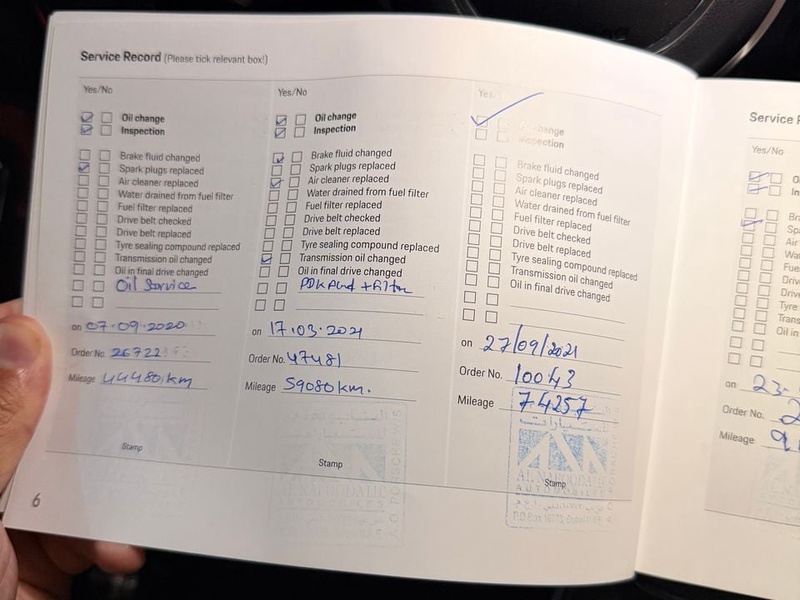 Service Record (Please tick relevant box!)
Yes/No
Oil change
Inspection
Brake fluid changed
Spark plugs replaced
Air cleaner replaced
Water drained from fuel filter
Fuel filter replaced
Drive belt checked
Drive belt replaced
Tyre sealing compound replaced
Transmission oil changed
Oil in final drive changed
Oil Service
on 07.09.2020
Order No. 26722
Mileage 44480 km
Stamp
6
Yes/No
Oil change
Inspection
Brake fluid changed
Spark plugs replaced
Air cleaner replaced
Water drained from fuel filter
Fuel filter replaced
Drive belt checked
Drive belt replaced
Tyre sealing compound replaced
Transmission oil changed
Oil in final drive changed
PDK fluid + filter
on 17.03.2021
Order No. 47481
Mileage 59080 km.
Stamp
Yes
change
Inspection
Brake fluid changed
Spark plugs replaced
Air cleaner replaced
Water drained from fuel filter
Fuel filter replaced
Drive belt checked
Drive belt replaced
Tyre sealing compound replaced
Transmission oil changed
Oil in final drive changed
on 27/09/2021
Order No. 10043
Mileage 74257
AUTOMOBILES
Stamp
Yes/No
on 23.
Order No.
Mileage 9